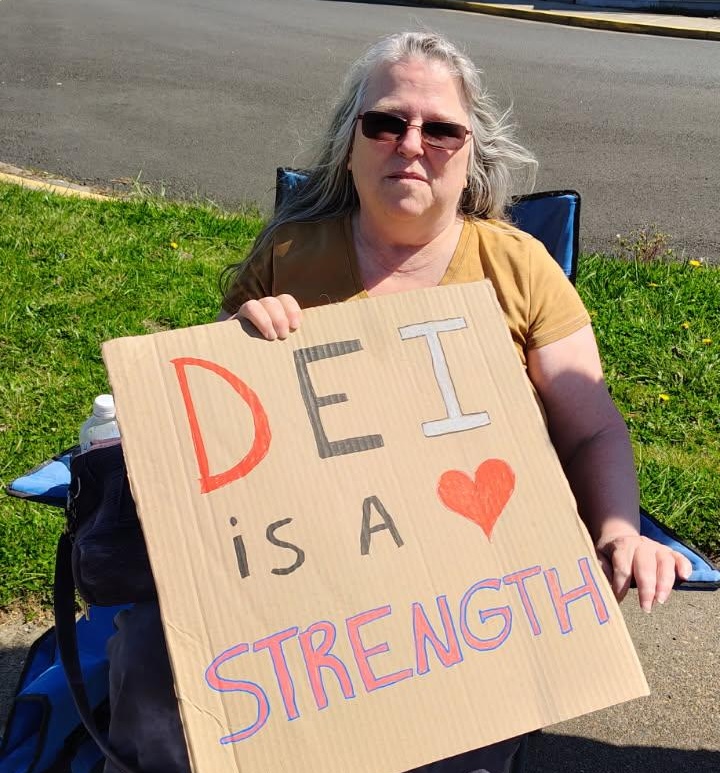 DEI
is A
STRENGTH